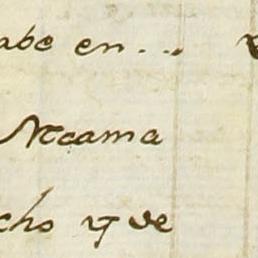 abe en...
Ncama
cho y ve